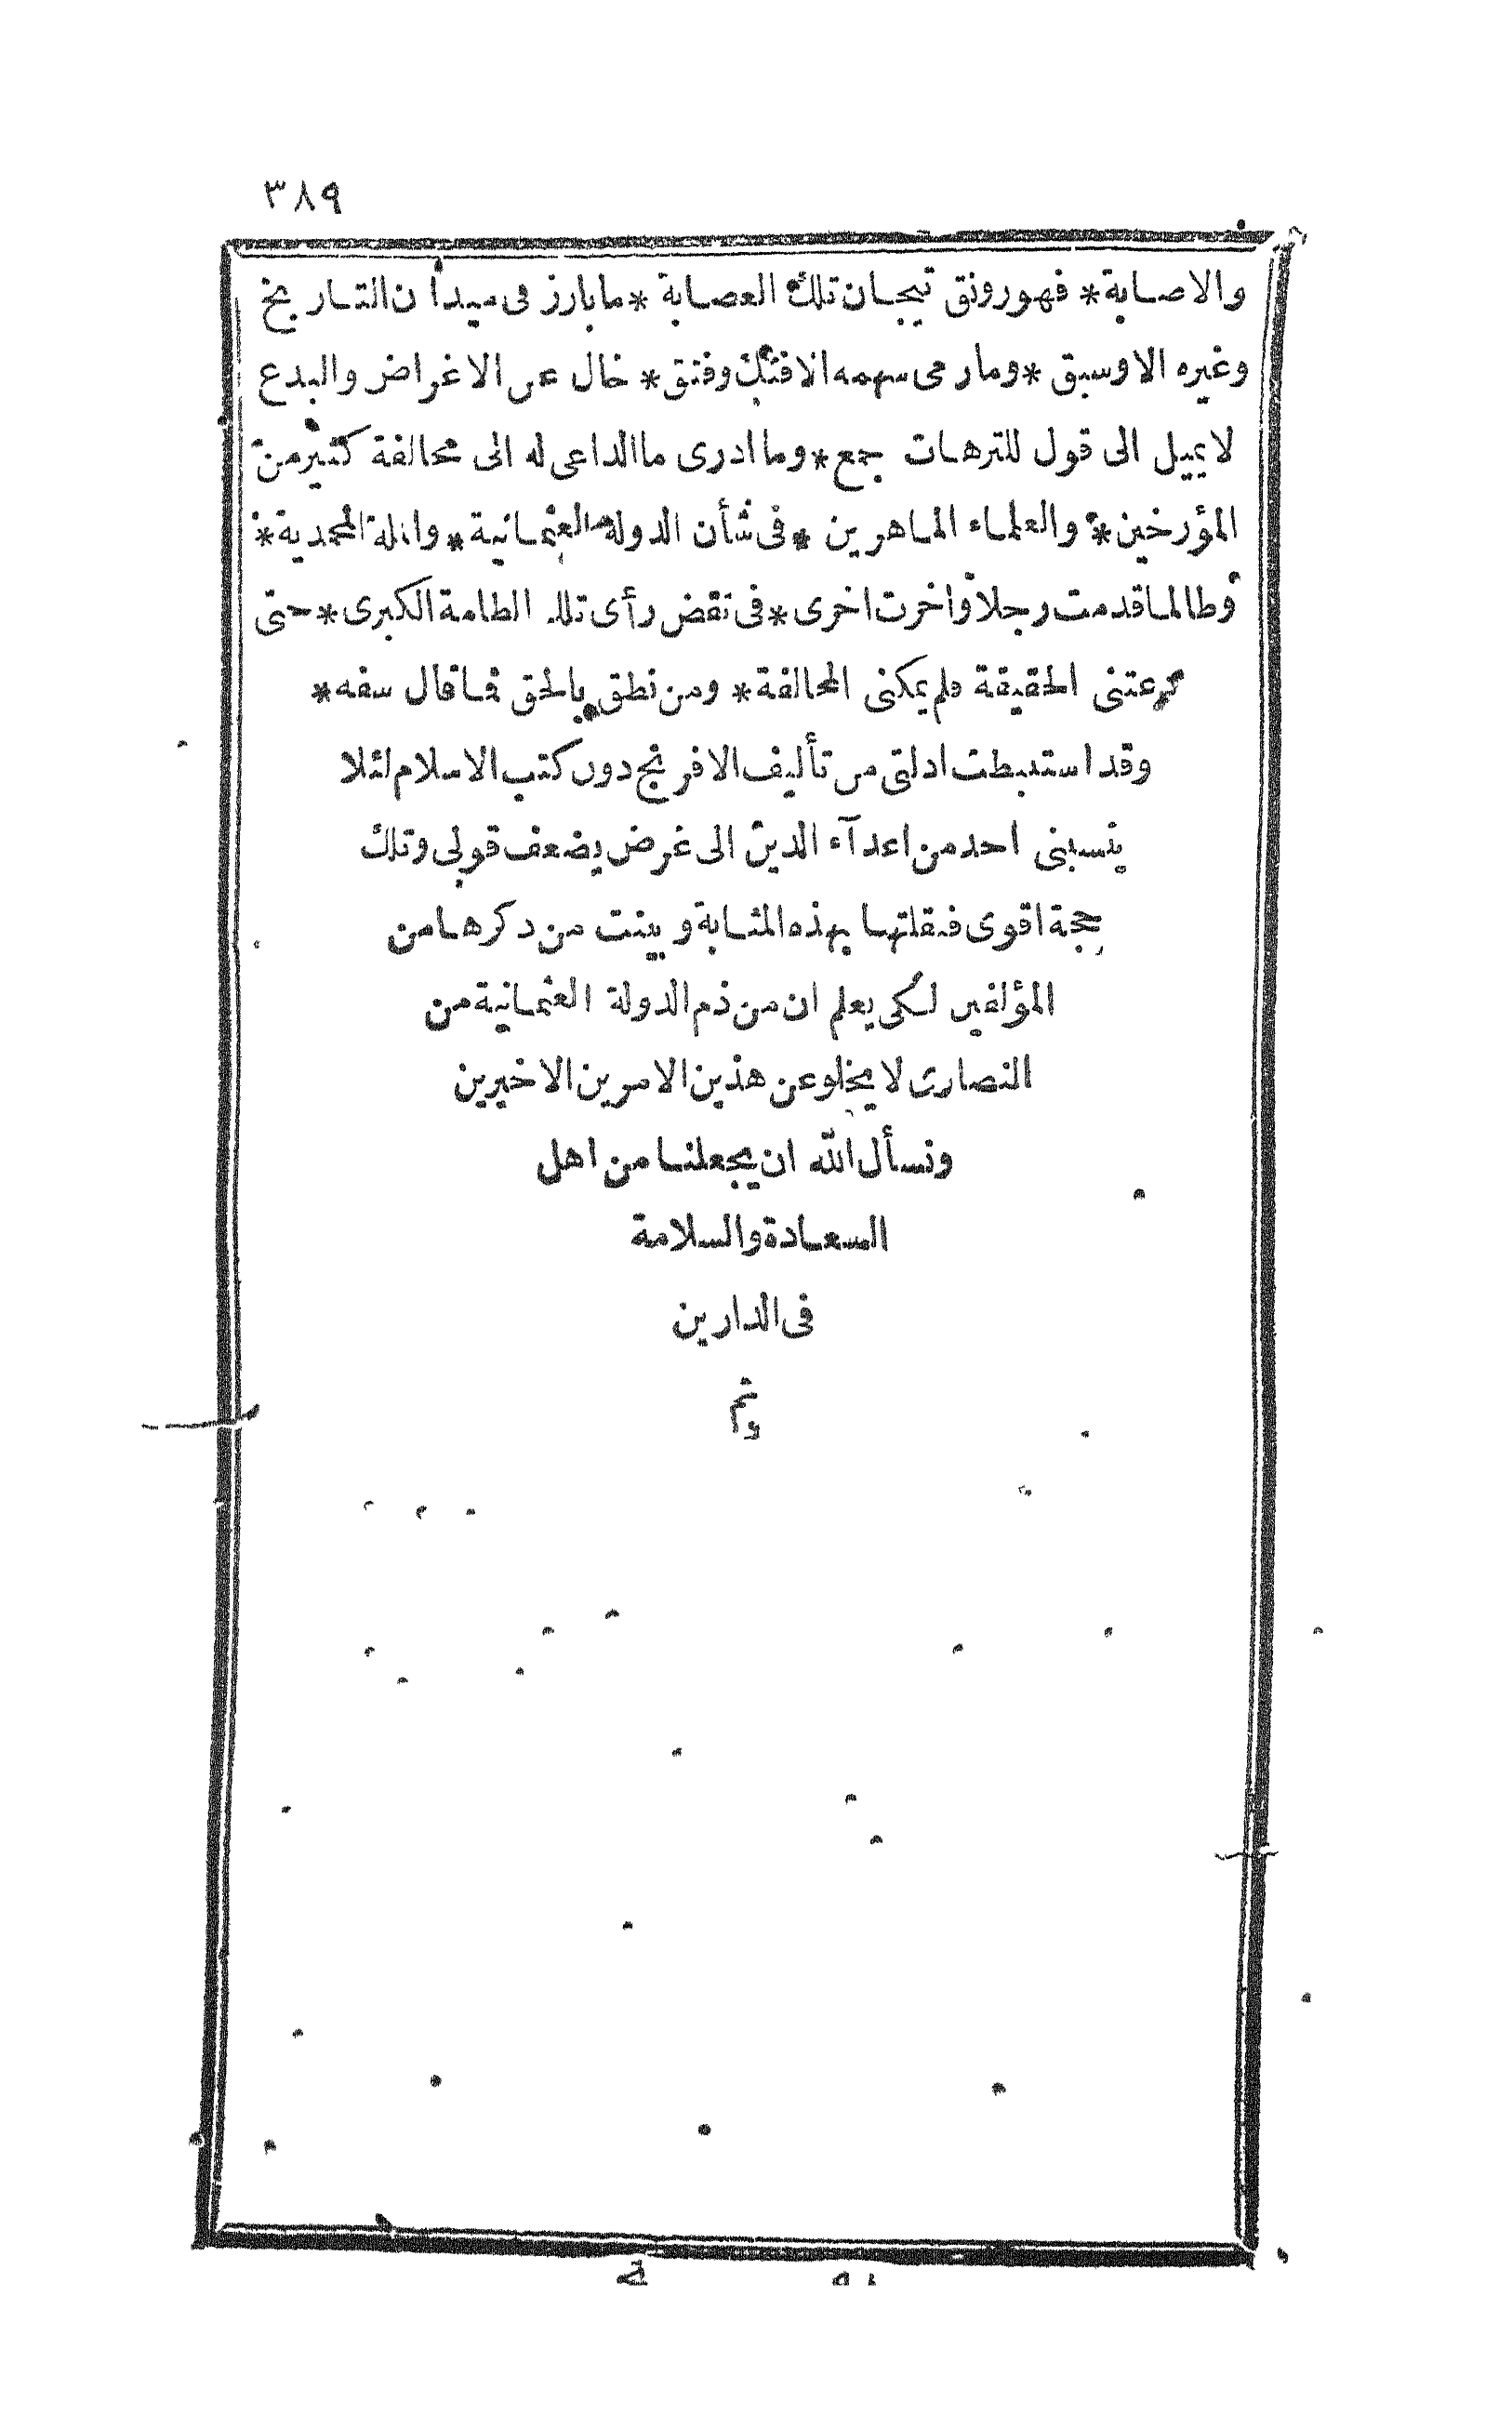 ٣٨٩
والاصابة * فهو رونق تيجان تلك العصابة * ما بارز فى ميدان التاريخ
وغيره الا وسبق * وما رمى سهمه الا فتك وفتق * خال عن الاغراض والبدع
لا يميل الى قول للترهات جمع * وما ادرى ما الداعى له الى مخالفة كثير من
المؤرخين * والعلماء الماهرين * فى شأن الدولة العثمانية * والملة المحمدية *
وطالما قدمت رجلا واخرت اخرى * فى نقض رأى تلك الطامة الكبرى * حتى
الحقيقة فلم يمكنى المخالفة * ومن نطق بالحق فما قال سفه *
وقد استنبطت ادلتى من تأليف الافرنج دون كتب الاسلام لئلا
ينسبنى احد من اعدآء الدين الى غرض يضعف قولى وتلك
حجة اقوى فنقلتها بهذه المثابة وبينت من ذكرها من
المؤلفين لكى يعلم ان من ذم الدولة العثمانية من
النصارى لا يخلو عن هذين الامرين الاخيرين
ونسأل الله ان يجعلنا من اهل
السعادة والسلامة
فى الدارين
تم